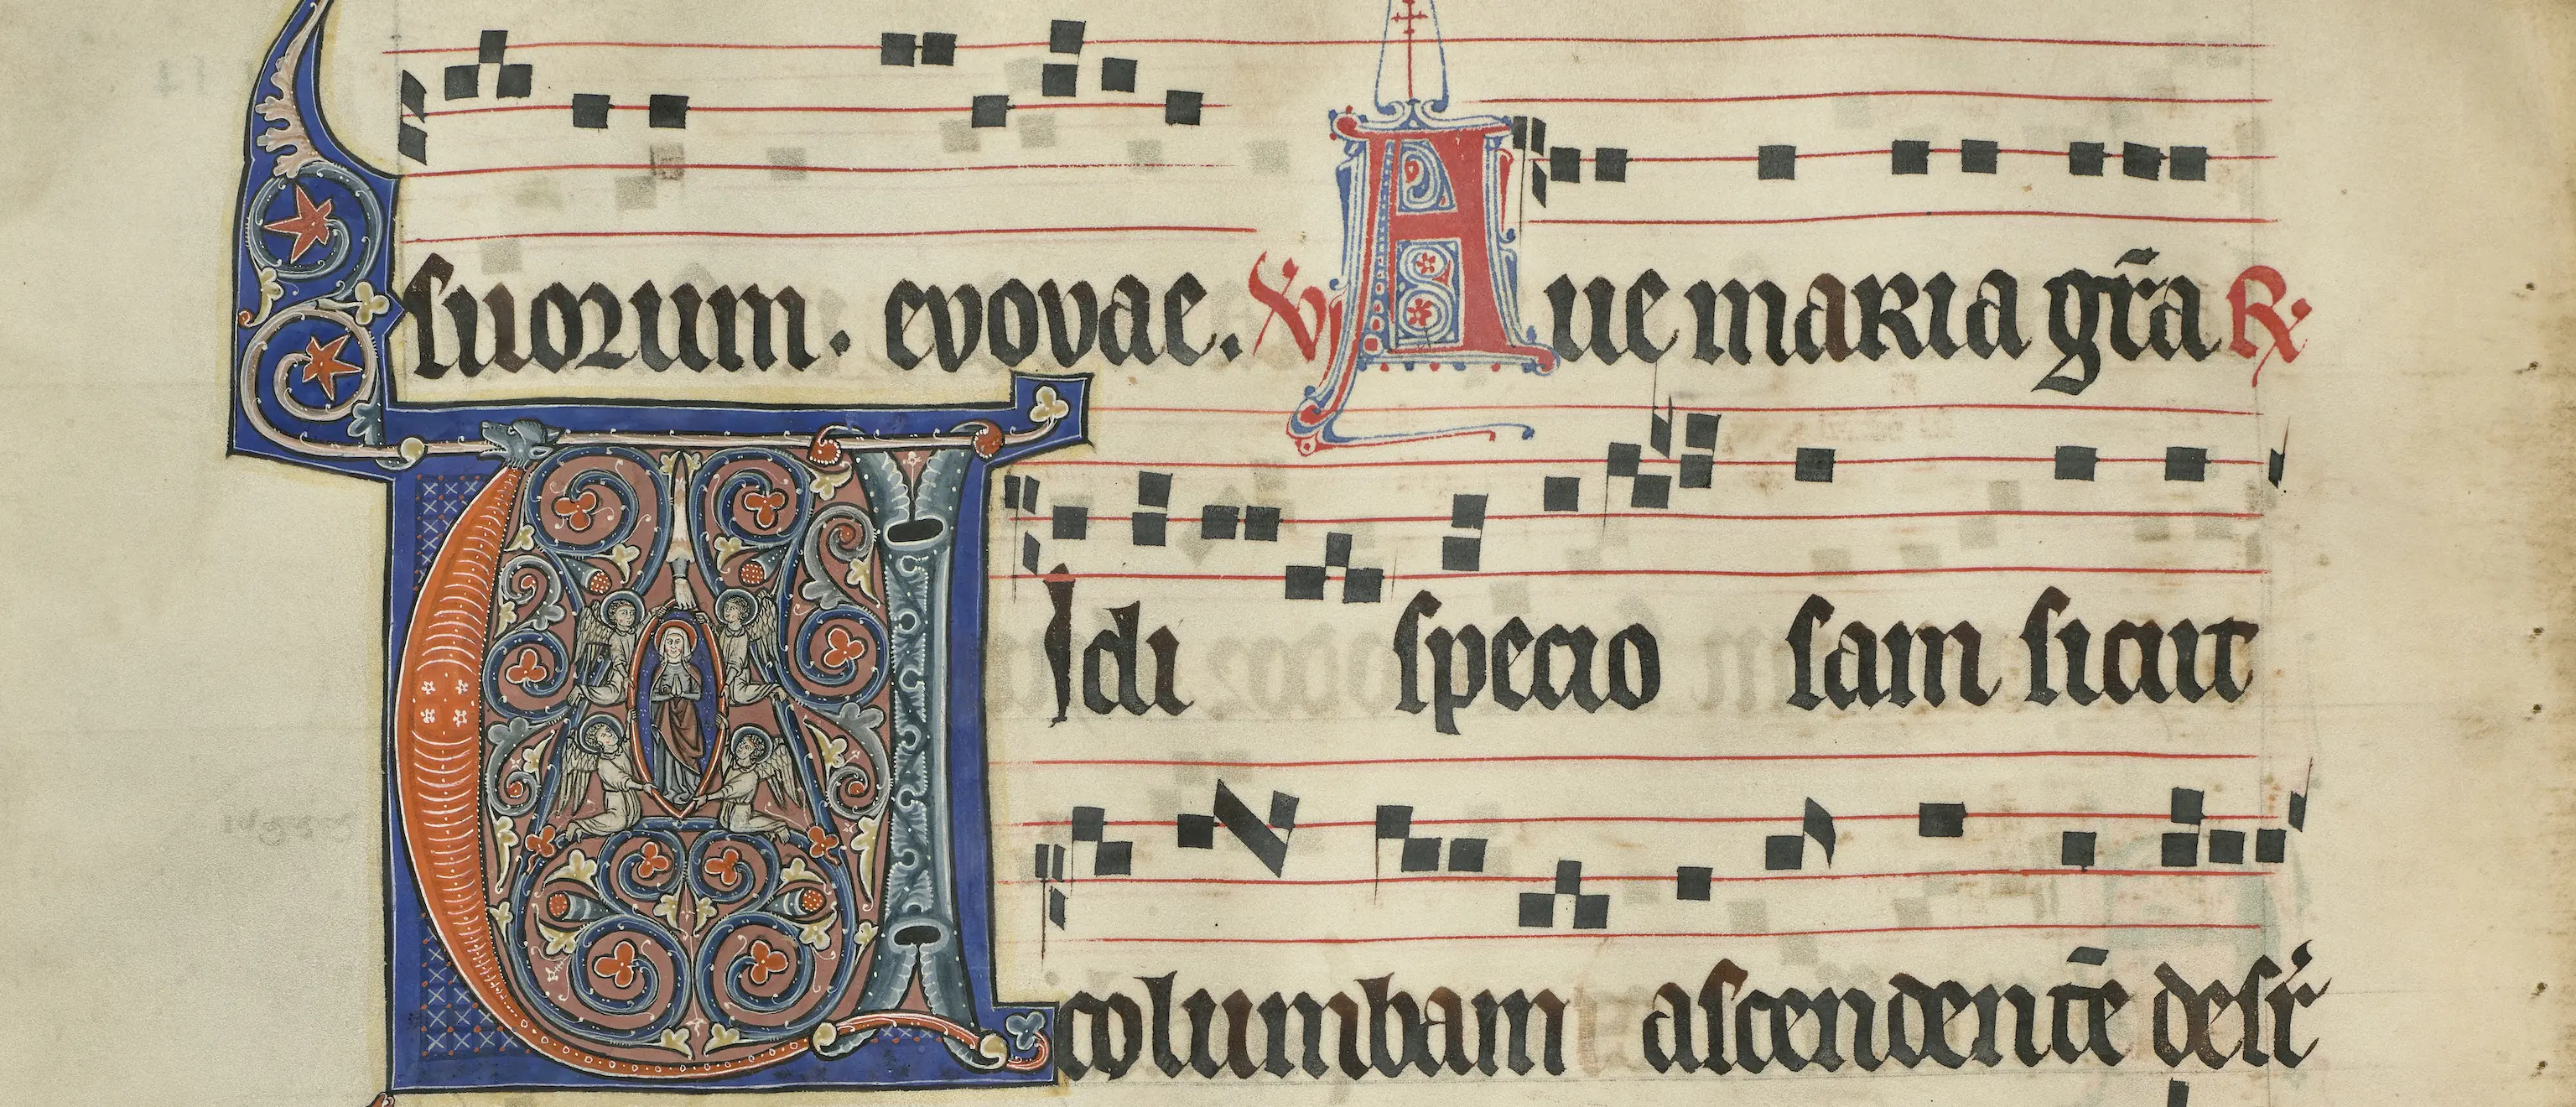 suorum. evovae. ℣ Aue maria gr̄a ℟
VIdi specio sam sicut
columbam ascendentē desr̄